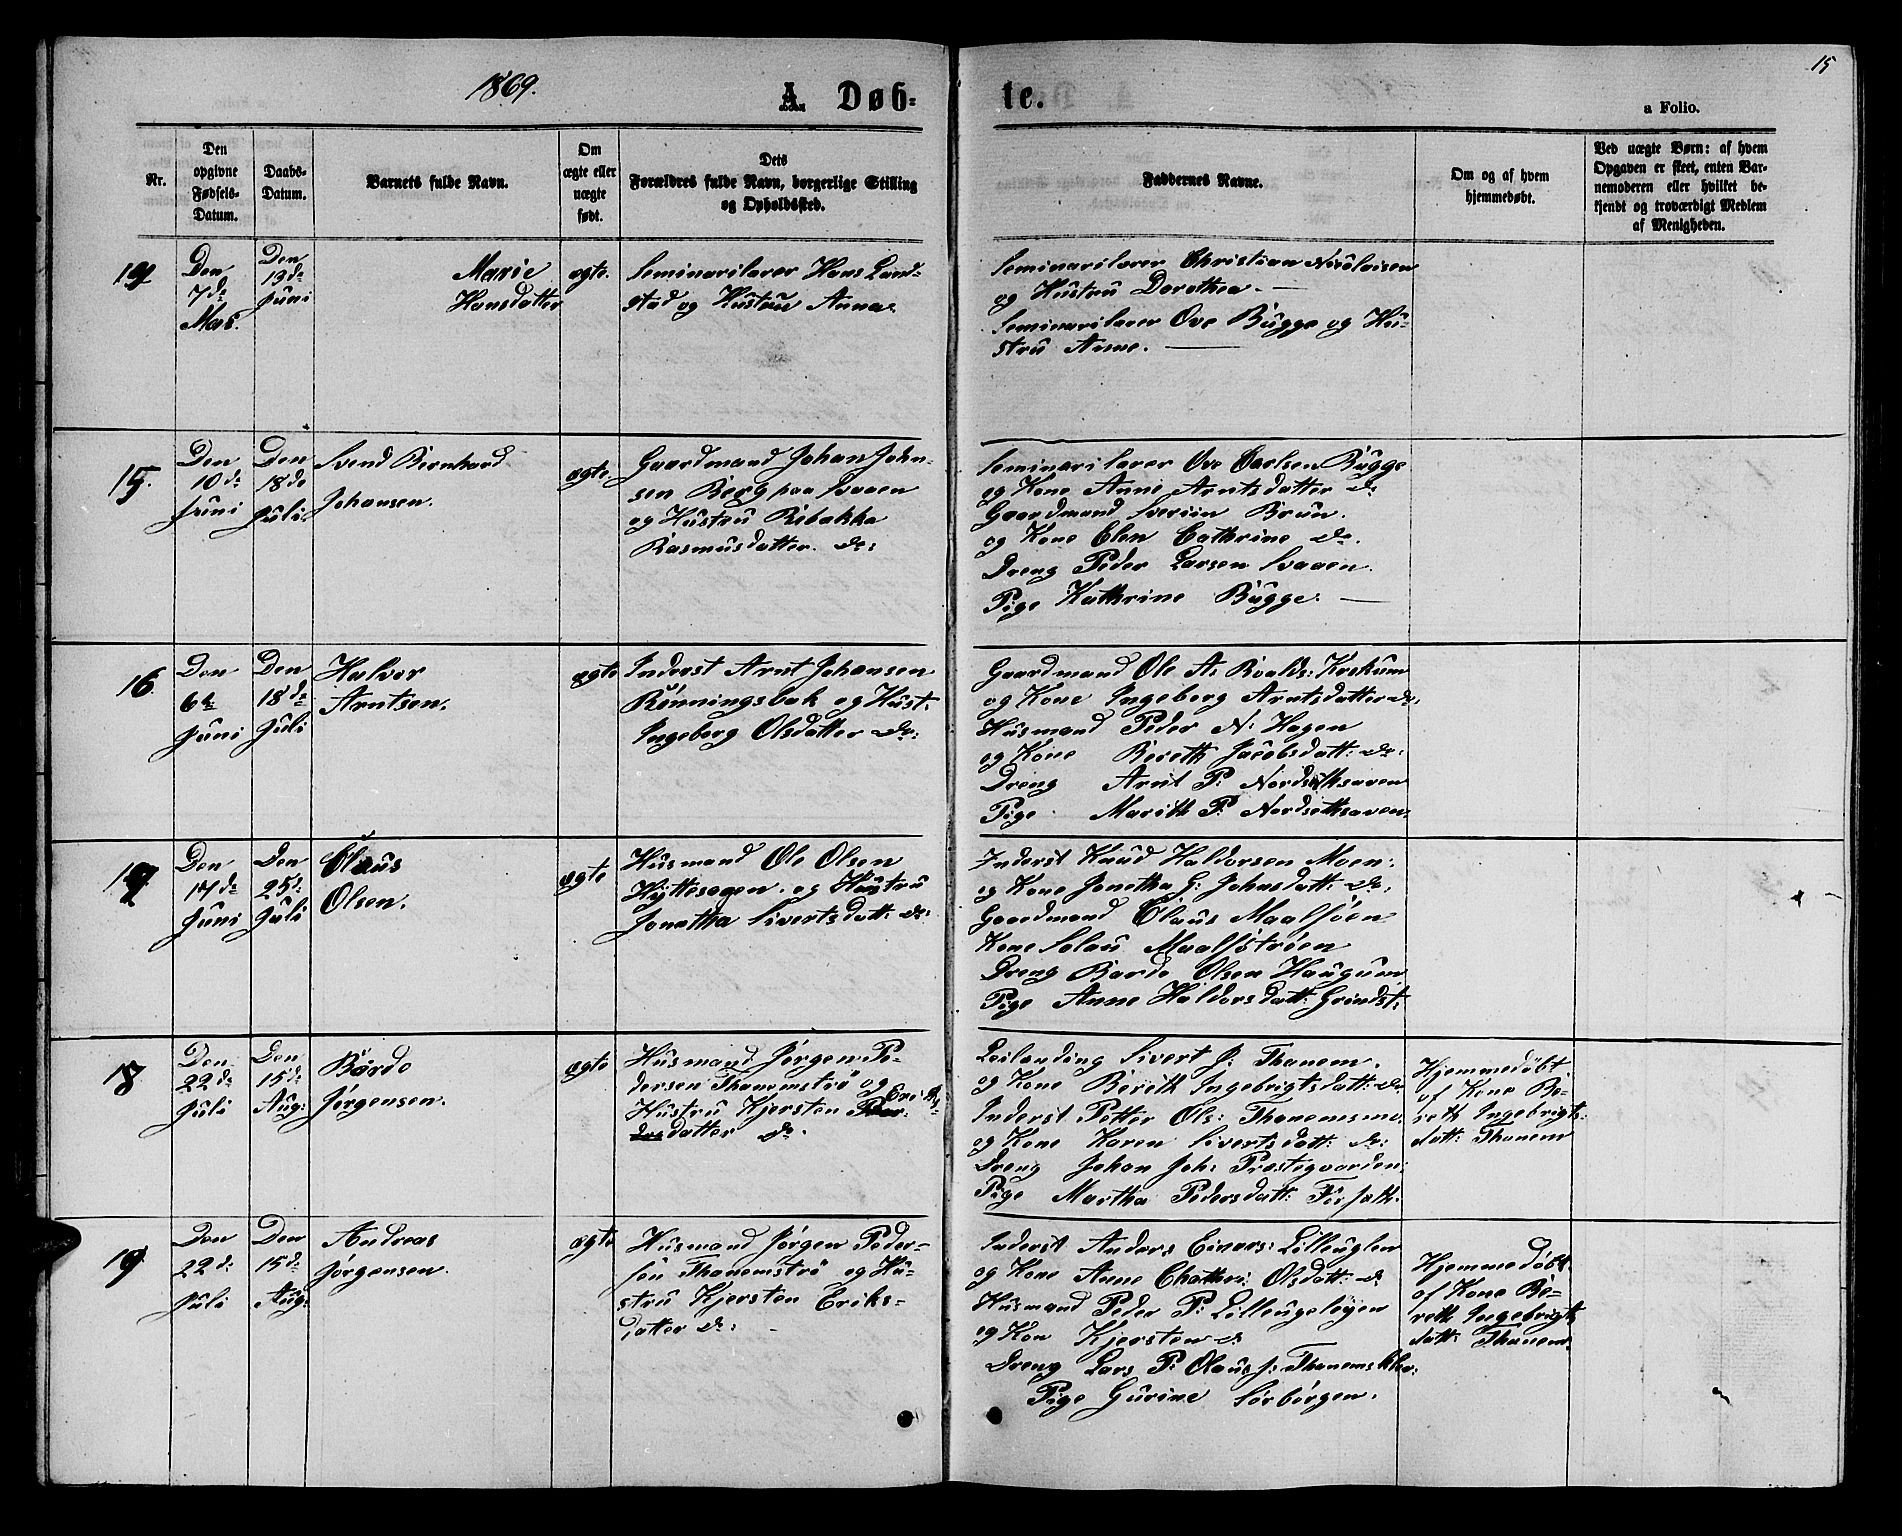 15
1869.
A. Døb-
te.
a Folio.
Nr.
Den
opgivne
Fødsels-
Datum.
Daabs-
Datum.
Barnets fulde Navn.
Om
ægte eller
uægte
født.
Dets
Forældres fulde Navn, borgerlige Stilling
og Opholdssted.
Faddernes Navne.
Om og af hvem
hjemmedøbt.
Ved uægte Børn: af hvem
Opgaven er skeet, enten Bar-
nemoderen eller hvilket be-
kjendt og troværdigt Medlem
af Menigheden.
14
Den
7de
Mai.
Den
13de
Juni
Marie
Hansdatter
ægte.
Seminarilærer Hans Land-
stad og Hustru Anna.
Seminarilærer Christian Nicolaisen
og Hustru Dorothea.
Seminarilærer Ove Bugge og Hu-
stru Anne.
15.
Den
10de
Juni
Den
18de
Juli.
Svend Bernhard
Johansen.
ægte
Gaardmand Johan John-
sen Berg paa Svaaen
og Hustru Rebakka
Rasmusdatter. do:
Seminarilærer Ove Carlsen Bugge
og Kone Anne Arntsdatter do
Gaardmand Sveriin Brun.
og Kone Elen Cathrine do.
Dreng Peder Larsen Svaaen.
Pige Kathrine Bugge.
16
Den
6te
Juni
Den
18de
Juli
Halvor
Arntsen.
ægte
Inderst Arnt Johansen
Rönningsbak og Hust:
Ingeberg Olsdatter do:
Gaardmand Ole A: Roalds: Kaskum
og Kone Ingeberg Arntsdatter do.
Husmand Peder N: Hagen
og Kone Bereth Jacobsdatt: do:
Dreng Arnt P: Nordsethsaven
Pige Marith P: Nordsethsaven.
17
Den
17de
Juni
Den
25de
Juli
Olaus
Olsen.
ægte
Husmand Ole Olsen
Hyttesagen. og Hustru
Jonetha Sivertsdatt: do:
Inderst Knud Haldorsen Moen:
og Kone Jonetha G: Johnsdatt: do.
Gaardmand Olaus Maalsöen
Kone Solau Maalsströen
Dreng Bardo Olsen Haugum
Pige Anne Haldorsdatt: Grindst:
18
Den
22de
Juli
Den
15de
Aug:
Bardo
Jørgensen.
ægte
Husmand Jørgen Pe-
dersen Thanemströ og
Hustru Kjersten Peder- Eriks-
datter do.
Leilænding Sivert J: Thanem.
og Kone Bereth Ingebrigtsdatt: do
Inderst Petter Ols: Thanemsmo
og Kone Karen Sivertsdatt: do:
Dreng Johan Joh: Præstegaarden.
Pige Martha Pedersdatt:
Hjemmedöbt
af Kone Be-
reth Ingebrigts-
datt: Thanem
19
Den
22de
Juli
Den
15de
Aug:
Andreas
Jørgensen.
ægte
Husmand Jørgen Peder-
sen Thanemströ og Hu-
stru Kjersten Eriks-
datter do:
Inderst Anders Einars: Lilleuglen
og Kone Anne Chathri: Olsdatt: do
Husmand Peder P: Lilleugeløyen
og Kon Kjersten do
Dreng Lars P: Olaus J: Thanemskler.
Pige Gurine Sörborgen.
Hjemmedöbt
af Kone Be-
reth Ingebrigts
datt: Thanem.